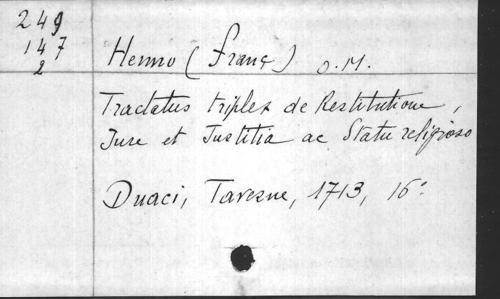 249
147
2
Henno (Franç) O.M.
Tractatus triplex de Restitutione,
Jure et Justitia ac Statu religioso
Duaci, Taverne, 1713, 16º